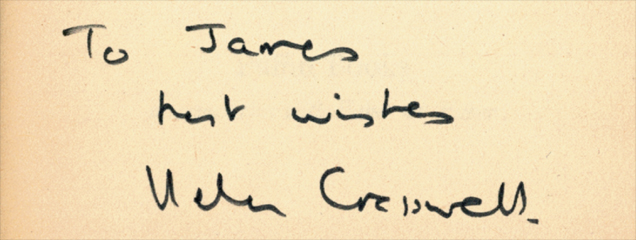 To James
best wishes
Helen Cresswell.